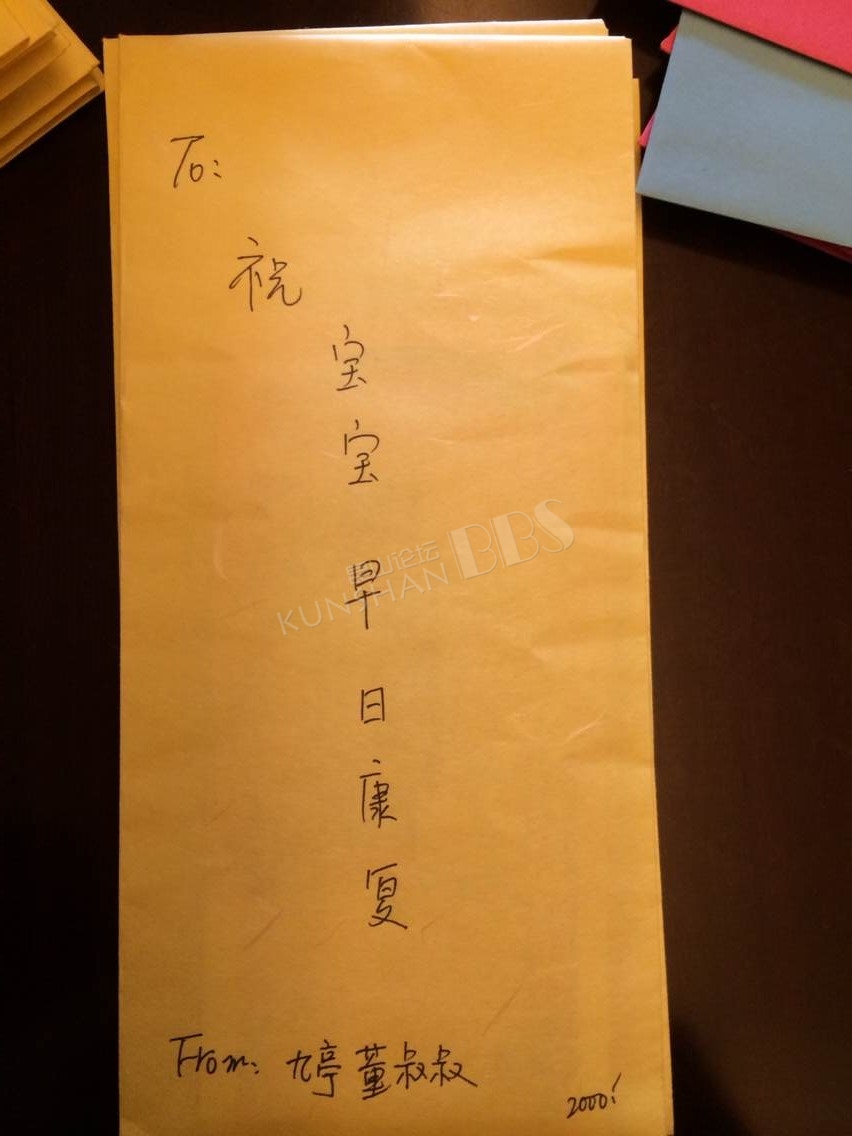 To:
祝
宝宝早日康复
昆山论坛
KUNSHAN BBS
From: 九亭董叔叔
2000!